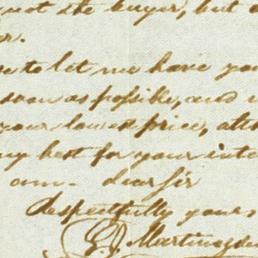 not the buyer, but
er.
to let me have you
soon as possible, and
your lowest price,
my best for your inte
am - dear Sir
Respectfully yours